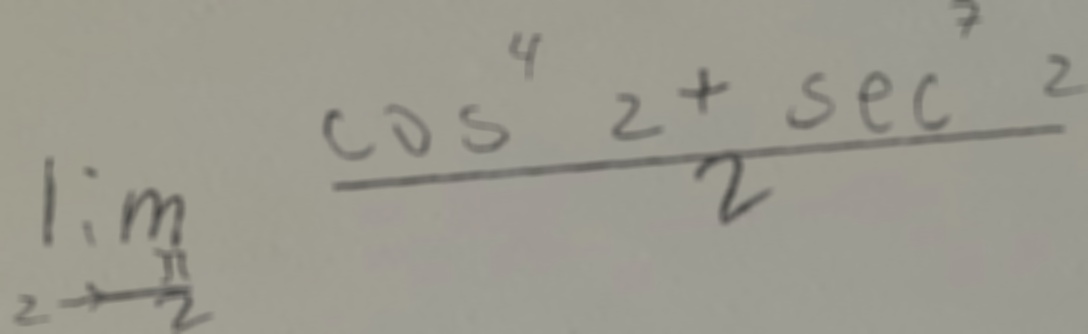 lim z→π/2 (cos⁴ z + sec⁷ z)/2